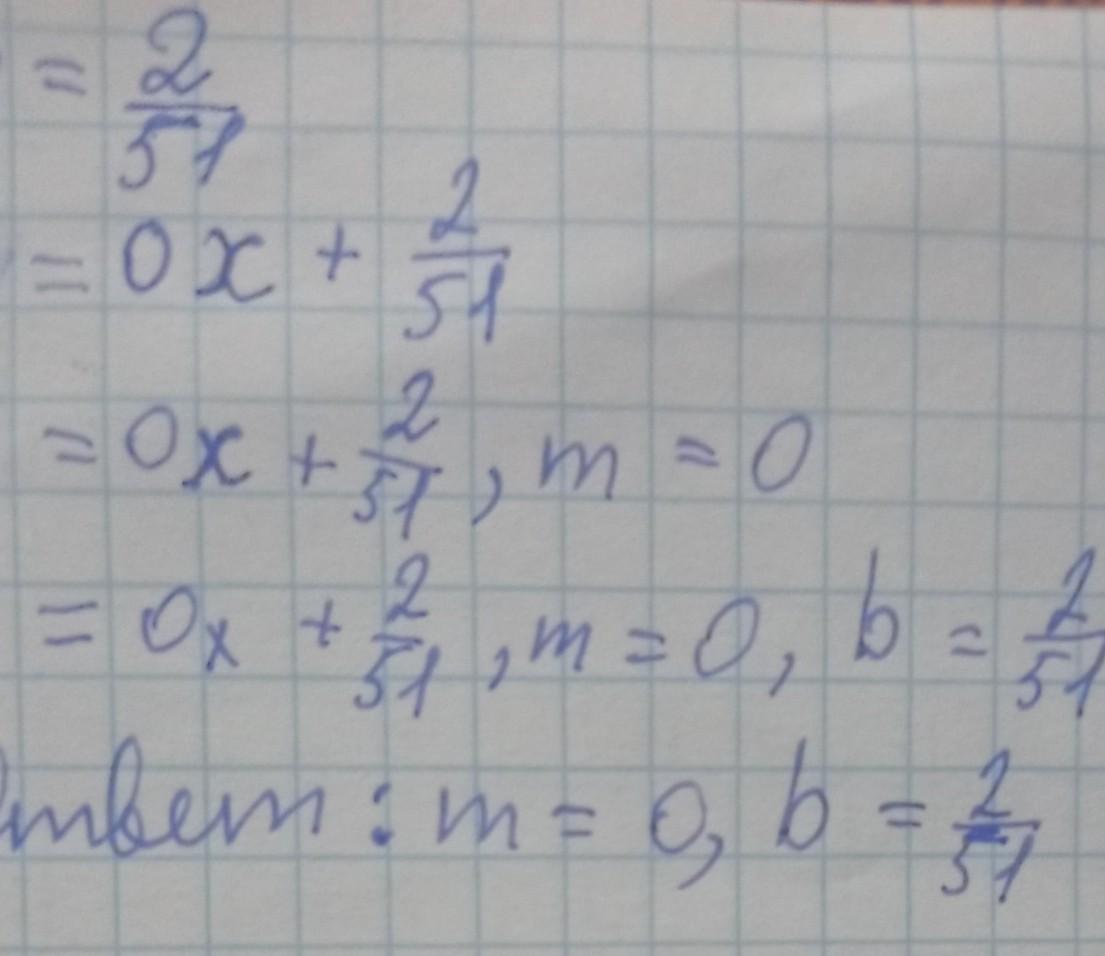 = 2/51
= 0x + 2/51
= 0x + 2/51, m = 0
= 0x + 2/51, m = 0, b = 2/51
Ответ: m = 0, b = 2/51